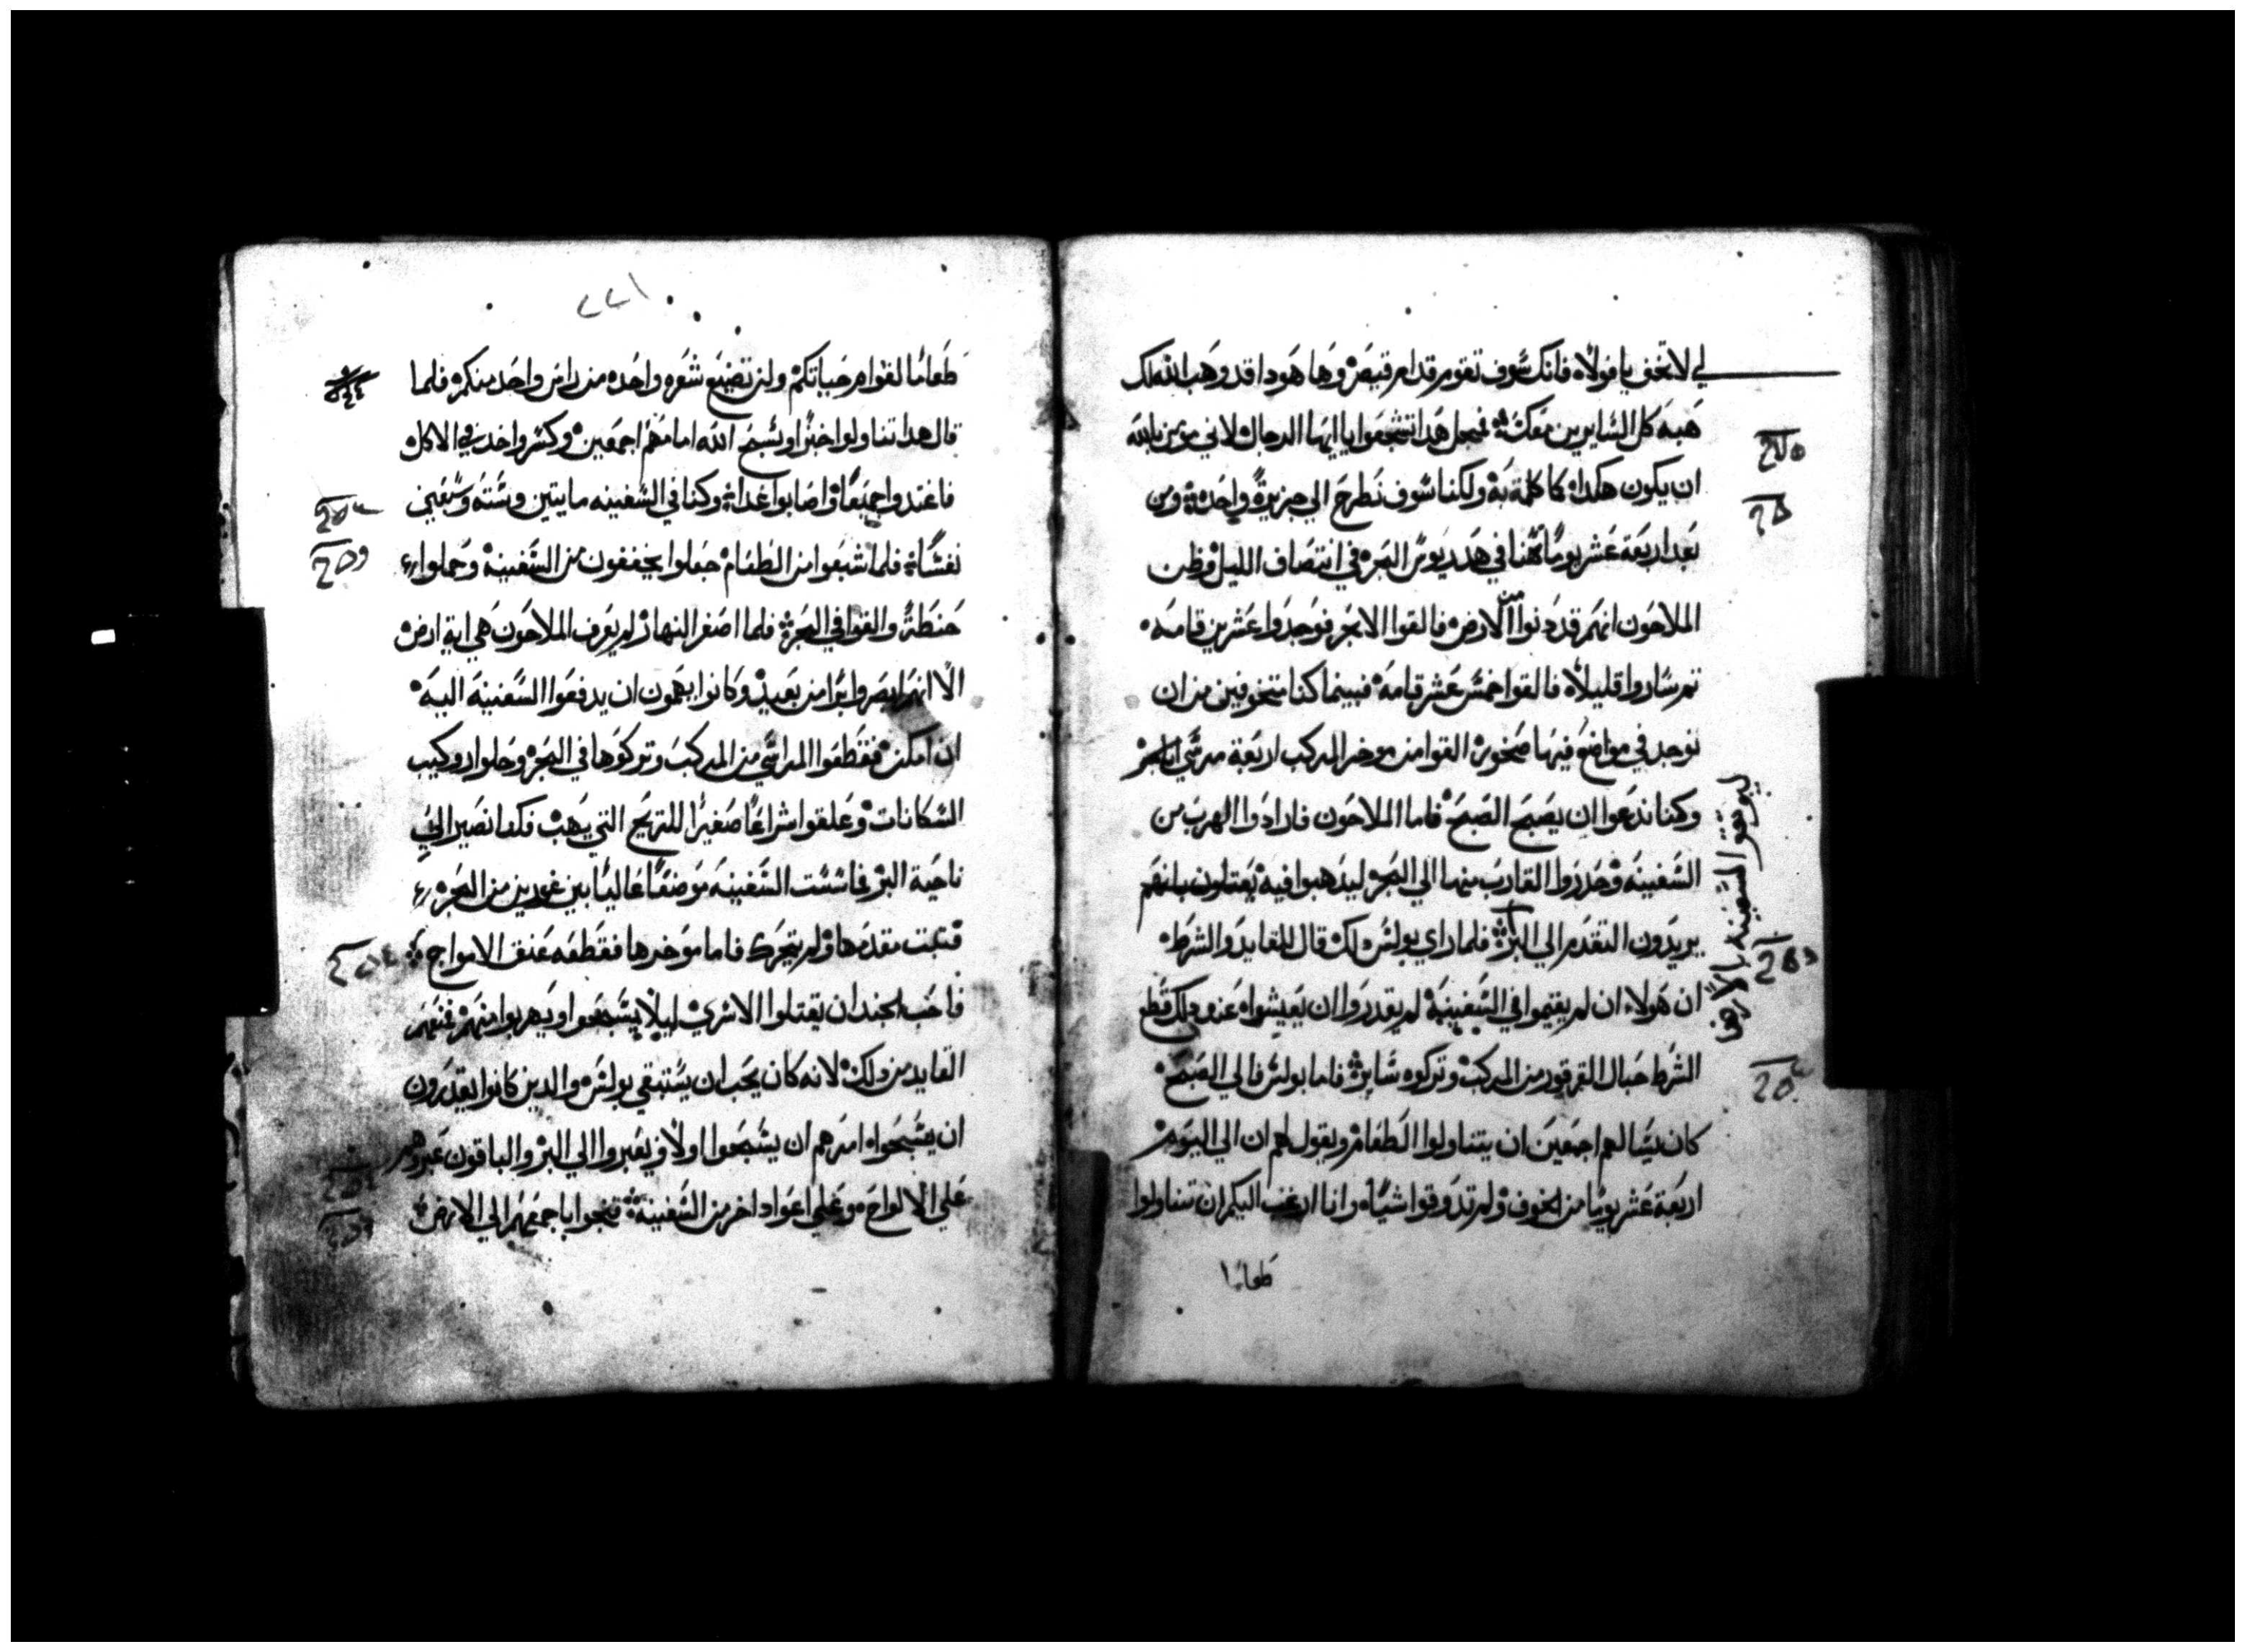 لي لا تخف يا فولاه فانك سوف تقوم قدام قيصر وها هودا قد وهب الله لك
هبه كل السايرين معك فمجل هدا تشجعوا يا ايها الرجال لاني مومن بالله
ان يكون هكدا كما كلمت به ولكنا سوف نطرح الي جزيرة واحدة ومن
بعد اربعة عشر يوما تهنا في هدريوس البحر في انتصاف الليل وظن
الملاحون انهم قد دنوا من الارض فالقوا الابحر فوجدوا عشرين قامه
تم ساروا قليلا فالقوا خمس عشر قامة فبينما كنا متخوفين من ان
نوجد في مواضع فيها صخور القوا من موخر المركب اربعة مراسي
وكنا ندعوا ان يصبح الصبح فاما الملاحون فارادوا الهرب من
السفينه وحدروا القارب منها الي البحر ليدهبوا فيه يعتلون بانهم
يريدون التقدم الي البر فلما راي بولس دلك قال للقايد والشرط
ان هولاء ان لم يقيموا في السفينة لم يقدروا ان يعيشوا عند دلك قطع
الشرط حبال القرقور من المركب وتركوه سايرة فاما بولس فالي الصبح
كان يسالهم اجمعين ان يتناولوا الطعام ويقول لهم ان الي اليوم
اربعة عشر يوما من الخوف ولم تدوقوا شياه وانا ارغب اليكم ان تتناولوا
طعاما
ليوتقوا السفينه بالارض
٢٢١
طعاما لقوام حياتكم ولن تضيع شعره واحده من راس واحد منكم فلما
قال هدا تناولوا خبزا ويسبح الله امامهم اجمعين وكسر واخد في الاكل
فاغتدوا جميعا واصابوا غداة وكنا في السفينه مايتين وسته وسبعين
نفسا فلما شبعوا من الطعام جعلوا يخففون من السفينة وحملوا
حنطة والقوا في البحر فلما اصفر النهار لم يعرف الملاحون هي اية ارض
الا انهم ابصروا برا من بعيد وكانوا يهمون ان يدفعوا السفينة اليه
ان امكن فقطعوا المراسي من المركب وتركوها في البحر وحلوا روكيب
السكانات وعلقوا شراعا صغيرا للريح التي يهب فكما نصير الي
ناحية البر فماسست السفينه موضعا عاليا بين غورين من البحر
فتبت مقدمها ولم يتحرك فاما موخرها فقطفه عنف الامواج
فاحب الجند ان يقتلوا الاسري ليلا يسبحوا ويهربوا منهم فمنعهم
القايد من دلك لانه كان يحب ان يستبقي بولس والدين كانوا يقدرون
ان يسبحوا امرهم ان يسبحوا اولا ويعبروا الي البر والباقون عبروهم
علي الالواح وعلي اعواد اخر من السفينة فنجوا باجمعهم الي الارض